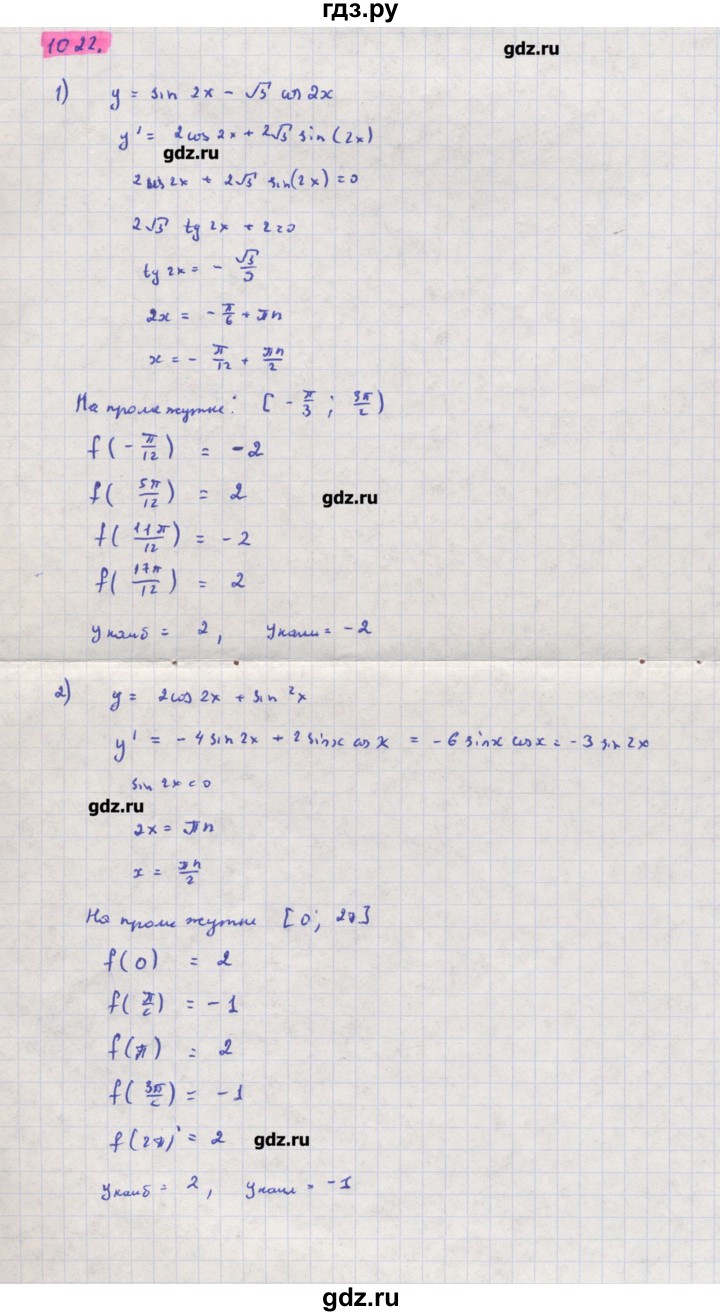 гдз.ру
1022.
gdz.ru
1) y = sin 2x - √3 cos 2x
y' = 2cos 2x + 2√3 sin(2x)
gdz.ru
2cos 2x + 2√3 sin(2x) = 0
2√3 tg 2x + 2 = 0
tg 2x = - √3/3
2x = - π/6 + πn
x = - π/12 + πn/2
На промежутке: [ - π/3 ; 3π/2 )
f(- π/12) = -2
f( 5π/12) = 2
gdz.ru
f( 11π/12) = -2
f( 17π/12) = 2
yнаиб = 2, yнаим = -2
2) y = 2cos 2x + sin²x
y' = -4 sin 2x + 2 sinx cos x = -6 sinx cosx = -3 sin 2x
sin 2x = 0
gdz.ru
2x = πn
x = πn/2
На промежутке [0; 2π]
f(0) = 2
f(π/2) = -1
f(π) = 2
f(3π/2) = -1
f(2π) = 2
gdz.ru
yнаиб = 2, yнаим = -1
gdz.ru